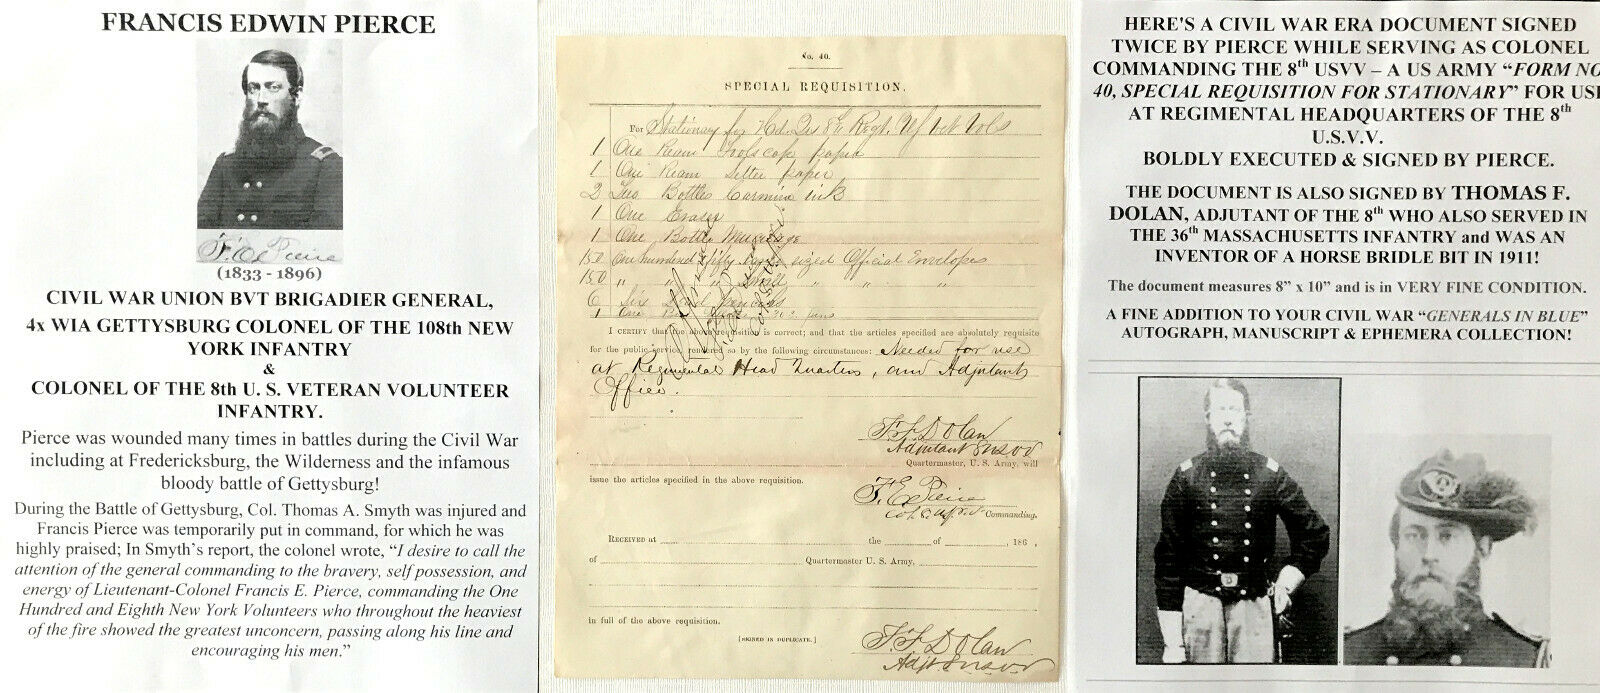 FRANCIS EDWIN PIERCE
F. E. Pierce
(1833 - 1896)
CIVIL WAR UNION BVT BRIGADIER GENERAL,
4x WIA GETTYSBURG COLONEL OF THE 108th NEW
YORK INFANTRY
&
COLONEL OF THE 8th U. S. VETERAN VOLUNTEER
INFANTRY.
Pierce was wounded many times in battles during the Civil War
including at Fredericksburg, the Wilderness and the infamous
bloody battle of Gettysburg!
During the Battle of Gettysburg, Col. Thomas A. Smyth was injured and
Francis Pierce was temporarily put in command, for which he was
highly praised; In Smyth's report, the colonel wrote, “I desire to call the
attention of the general commanding to the bravery, self possession, and
energy of Lieutenant-Colonel Francis E. Pierce, commanding the One
Hundred and Eighth New York Volunteers who throughout the heaviest
of the fire showed the greatest unconcern, passing along his line and
encouraging his men.”
No. 40.
SPECIAL REQUISITION.
For Stationary for Hd. Qrs 8th Regt. U S Vet Vols
1 One Ream Foolscap paper
1 One Ream Letter paper
2 Two Bottles Carmine ink
1 One Eraser
1 One Bottle Mucilage
150 One hundred & fifty sized Official Envelopes
150 " " " Small " " "
6 Six Lead pencils
1 One pens
I CERTIFY that the above requisition is correct; and that the articles specified are absolutely requisite
for the public service, rendered so by the following circumstances: Needed for use
at Regimental Head Quarters, and Adjutants
Office.
T. F. Dolan
Adjutant 8 U S V V
Quartermaster, U. S. Army, will
issue the articles specified in the above requisition.
F. E. Pierce
Col. Commanding.
RECEIVED at the of , 186 ,
of Quartermaster U. S. Army,
in full of the above requisition.
[SIGNED IN DUPLICATE.]
T. F. Dolan
Adjt 8 U S V V
HERE'S A CIVIL WAR ERA DOCUMENT SIGNED
TWICE BY PIERCE WHILE SERVING AS COLONEL
COMMANDING THE 8th USVV – A US ARMY “FORM NO
40, SPECIAL REQUISITION FOR STATIONARY” FOR USE
AT REGIMENTAL HEADQUARTERS OF THE 8th
U.S.V.V.
BOLDLY EXECUTED & SIGNED BY PIERCE.
THE DOCUMENT IS ALSO SIGNED BY THOMAS F.
DOLAN, ADJUTANT OF THE 8th WHO ALSO SERVED IN
THE 36th MASSACHUSETTS INFANTRY and WAS AN
INVENTOR OF A HORSE BRIDLE BIT IN 1911!
The document measures 8” x 10” and is in VERY FINE CONDITION.
A FINE ADDITION TO YOUR CIVIL WAR “GENERALS IN BLUE”
AUTOGRAPH, MANUSCRIPT & EPHEMERA COLLECTION!